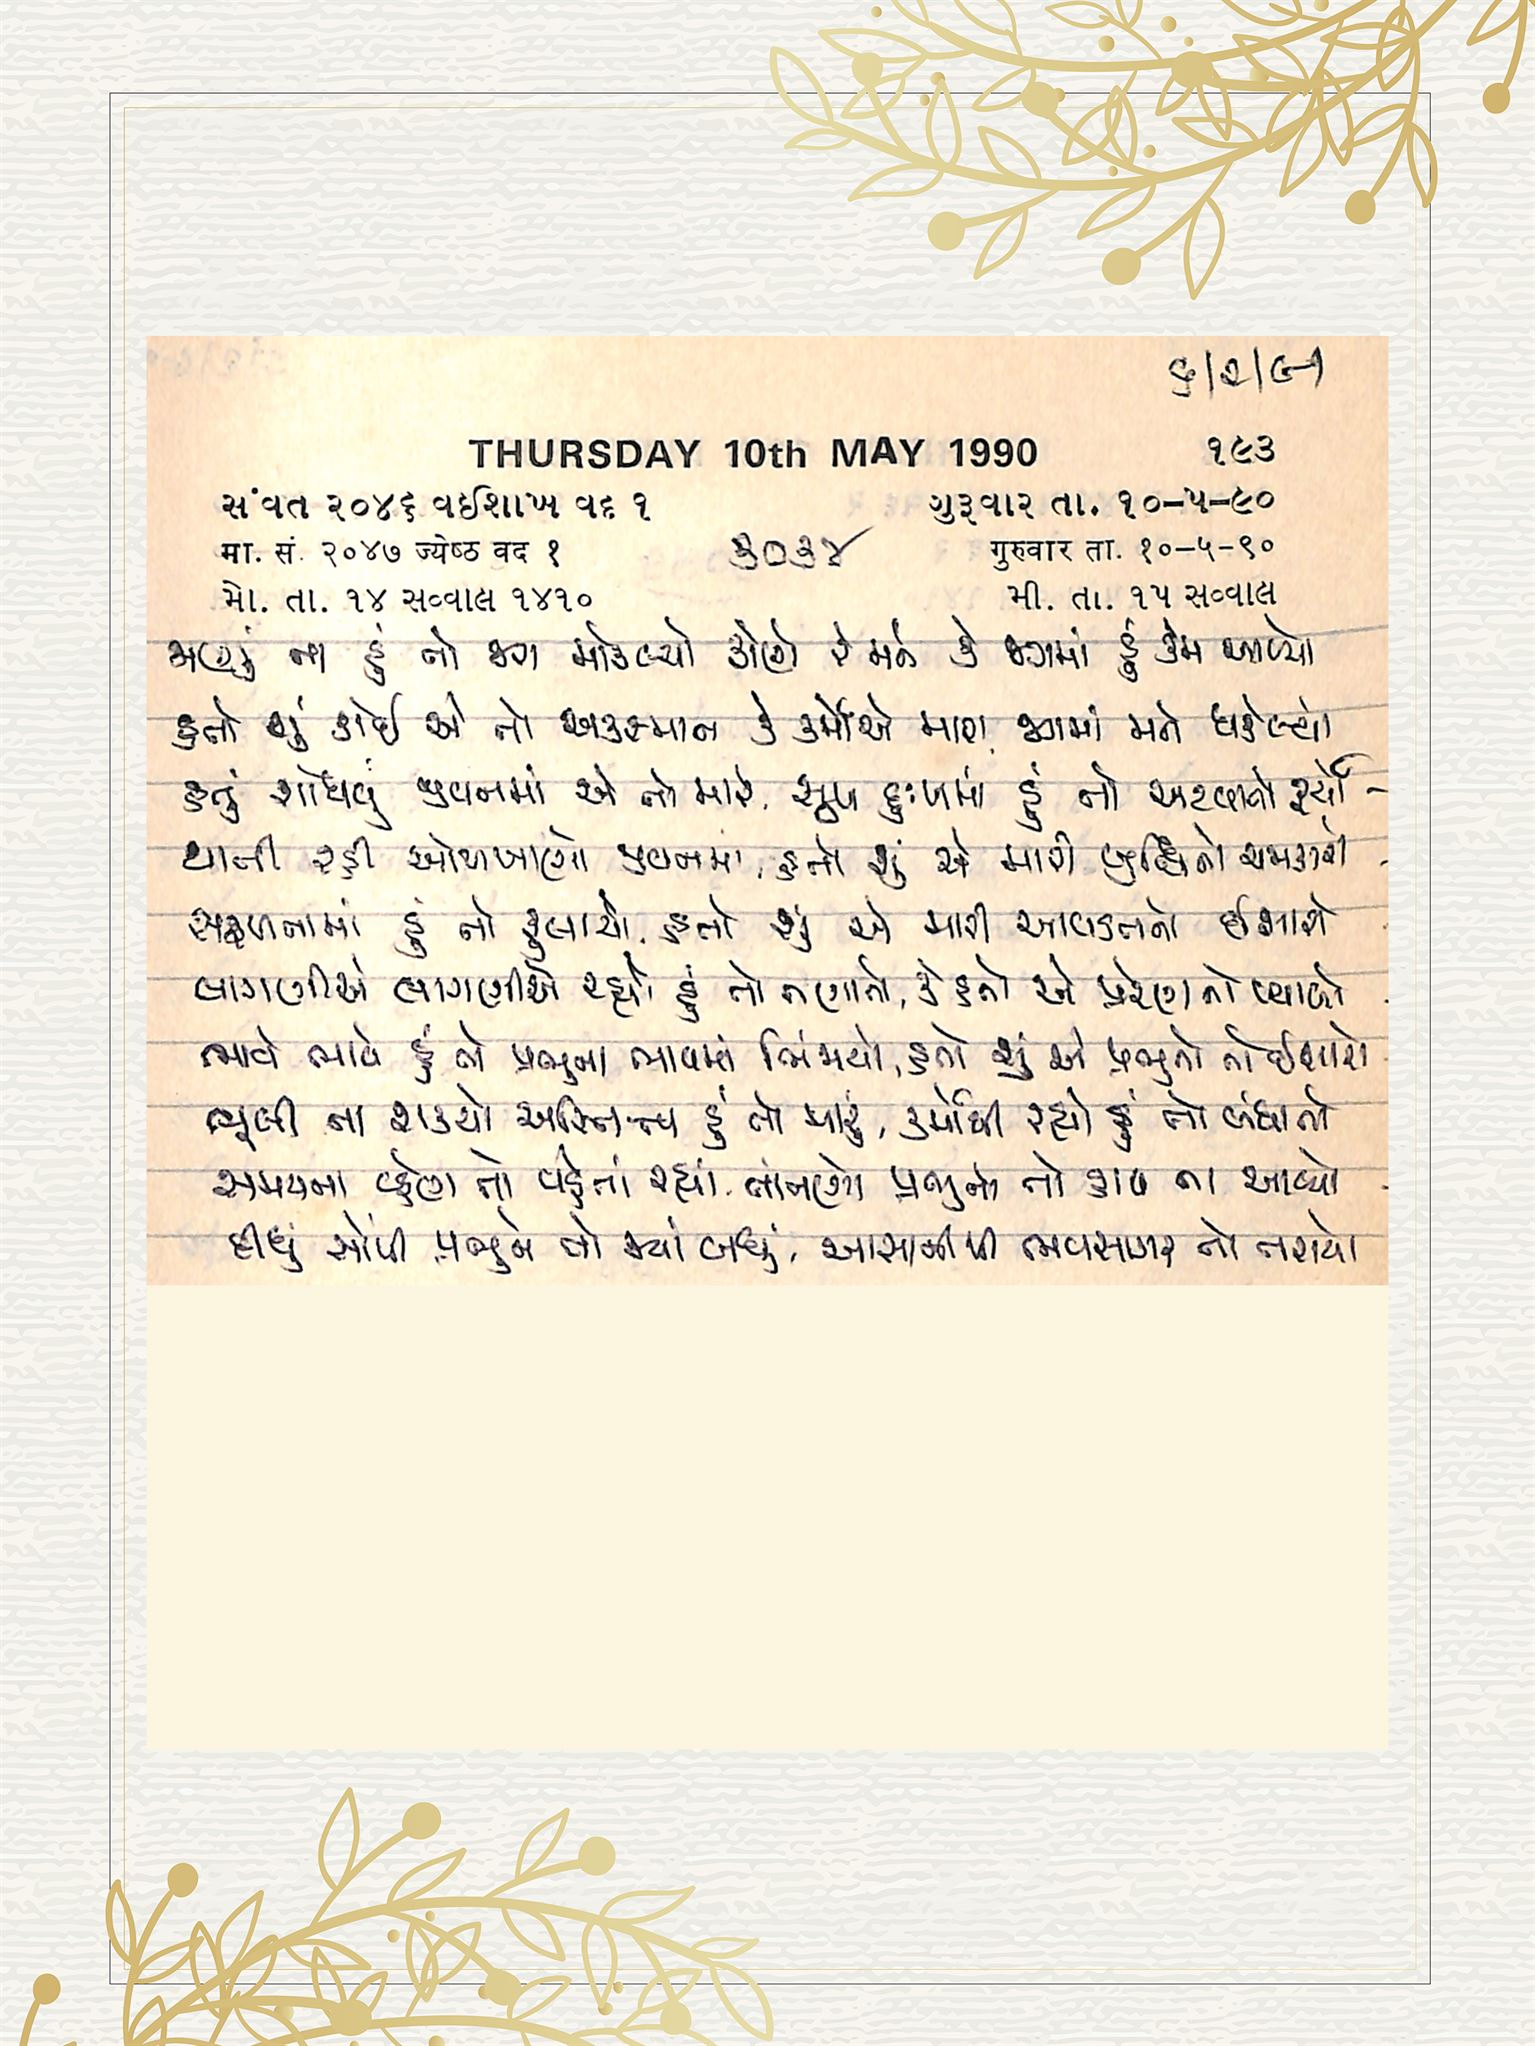 ૬/૨/૯૧
THURSDAY 10th MAY 1990 ૧૯૩
સંવત ૨૦૪૬ વઈશાખ વદ ૧ ગુરૂવાર તા. ૧૦-૫-૯૦
मा. सं. २०४७ ज्येष्ठ वद १ ૩૦૩૪ गुरुवार ता. १०-५-९०
મો. તા. ૧૪ સવ્વાલ ૧૪૧૦ મી. તા. ૧૫ સવ્વાલ
જાણું ના હું તો જગ મોકલ્યો કોણે રે મને કે જગમાં હું કેમ આવ્યો
હતો શું કોઈ એ તો અકસ્માત કે કર્મોએ મારા જગમાં મને ધકેલ્યો
હતું શોધવું જીવનમાં એ તો મારે, સુખ દુઃખમાં હું તો અટવાતો રહ્યો -
થાતી રહી ઓળખાણો જીવનમાં, હતો શું એ મારી બુદ્ધિનો ચમકારો
સફળતામાં હું તો ફુલાયો, હતો શું એ મારી આવડતનો ઈશારો
લાગણીએ લાગણીએ રહ્યો હું તો તણાતો, કે હતો એ પ્રેરણાનો પ્યાલો
ભાવે ભાવે હું તો પ્રભુના ભાવમાં ભિંજાયો, હતો શું એ પ્રભુનો તો ઈશારો
ભૂલી ના શક્યો અસ્તિત્વ હું તો મારું, કર્મોથી રહ્યો હું તો બંધાતો
સમયના વ્હેણ તો વહેતાં રહ્યાં, તાંતણો પ્રભુનો તો હાથ ના આવ્યો
દીધું સોંપી પ્રભુને તો જ્યાં બધું, આસાનીથી ભવસાગર તો તરાયો